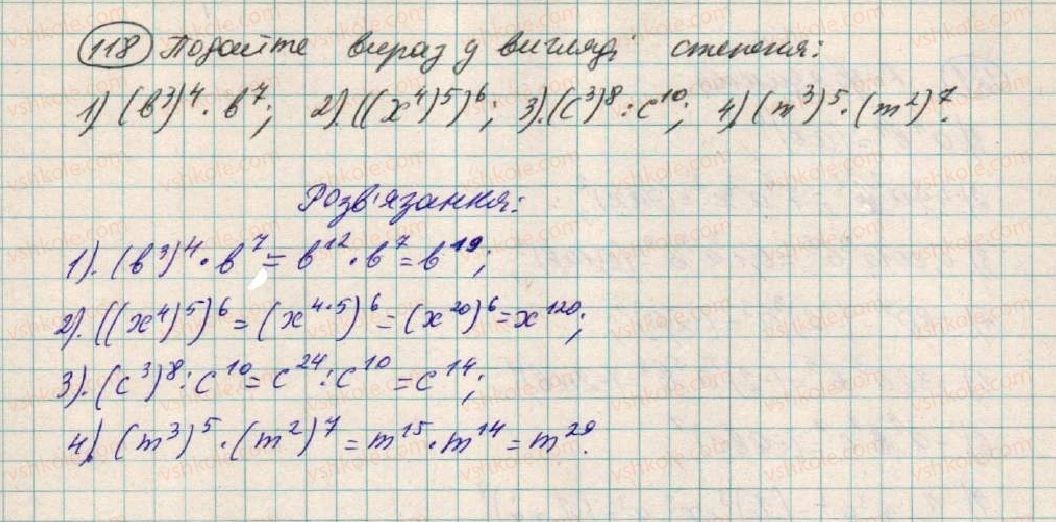 118 Подайте вираз у вигляді степеня:
1) (b³)⁴ · b⁷; 2). ((x⁴)⁵)⁶; 3). (c³)⁸ : c¹⁰; 4) (m³)⁵ · (m²)⁷.
Розв'язання:
1). (b³)⁴ · b⁷ = b¹² · b⁷ = b¹⁹;
2). ((x⁴)⁵)⁶ = (x⁴·⁵)⁶ = (x²⁰)⁶ = x¹²⁰;
3). (c³)⁸ : c¹⁰ = c²⁴ : c¹⁰ = c¹⁴;
4) (m³)⁵ · (m²)⁷ = m¹⁵ · m¹⁴ = m²⁹.